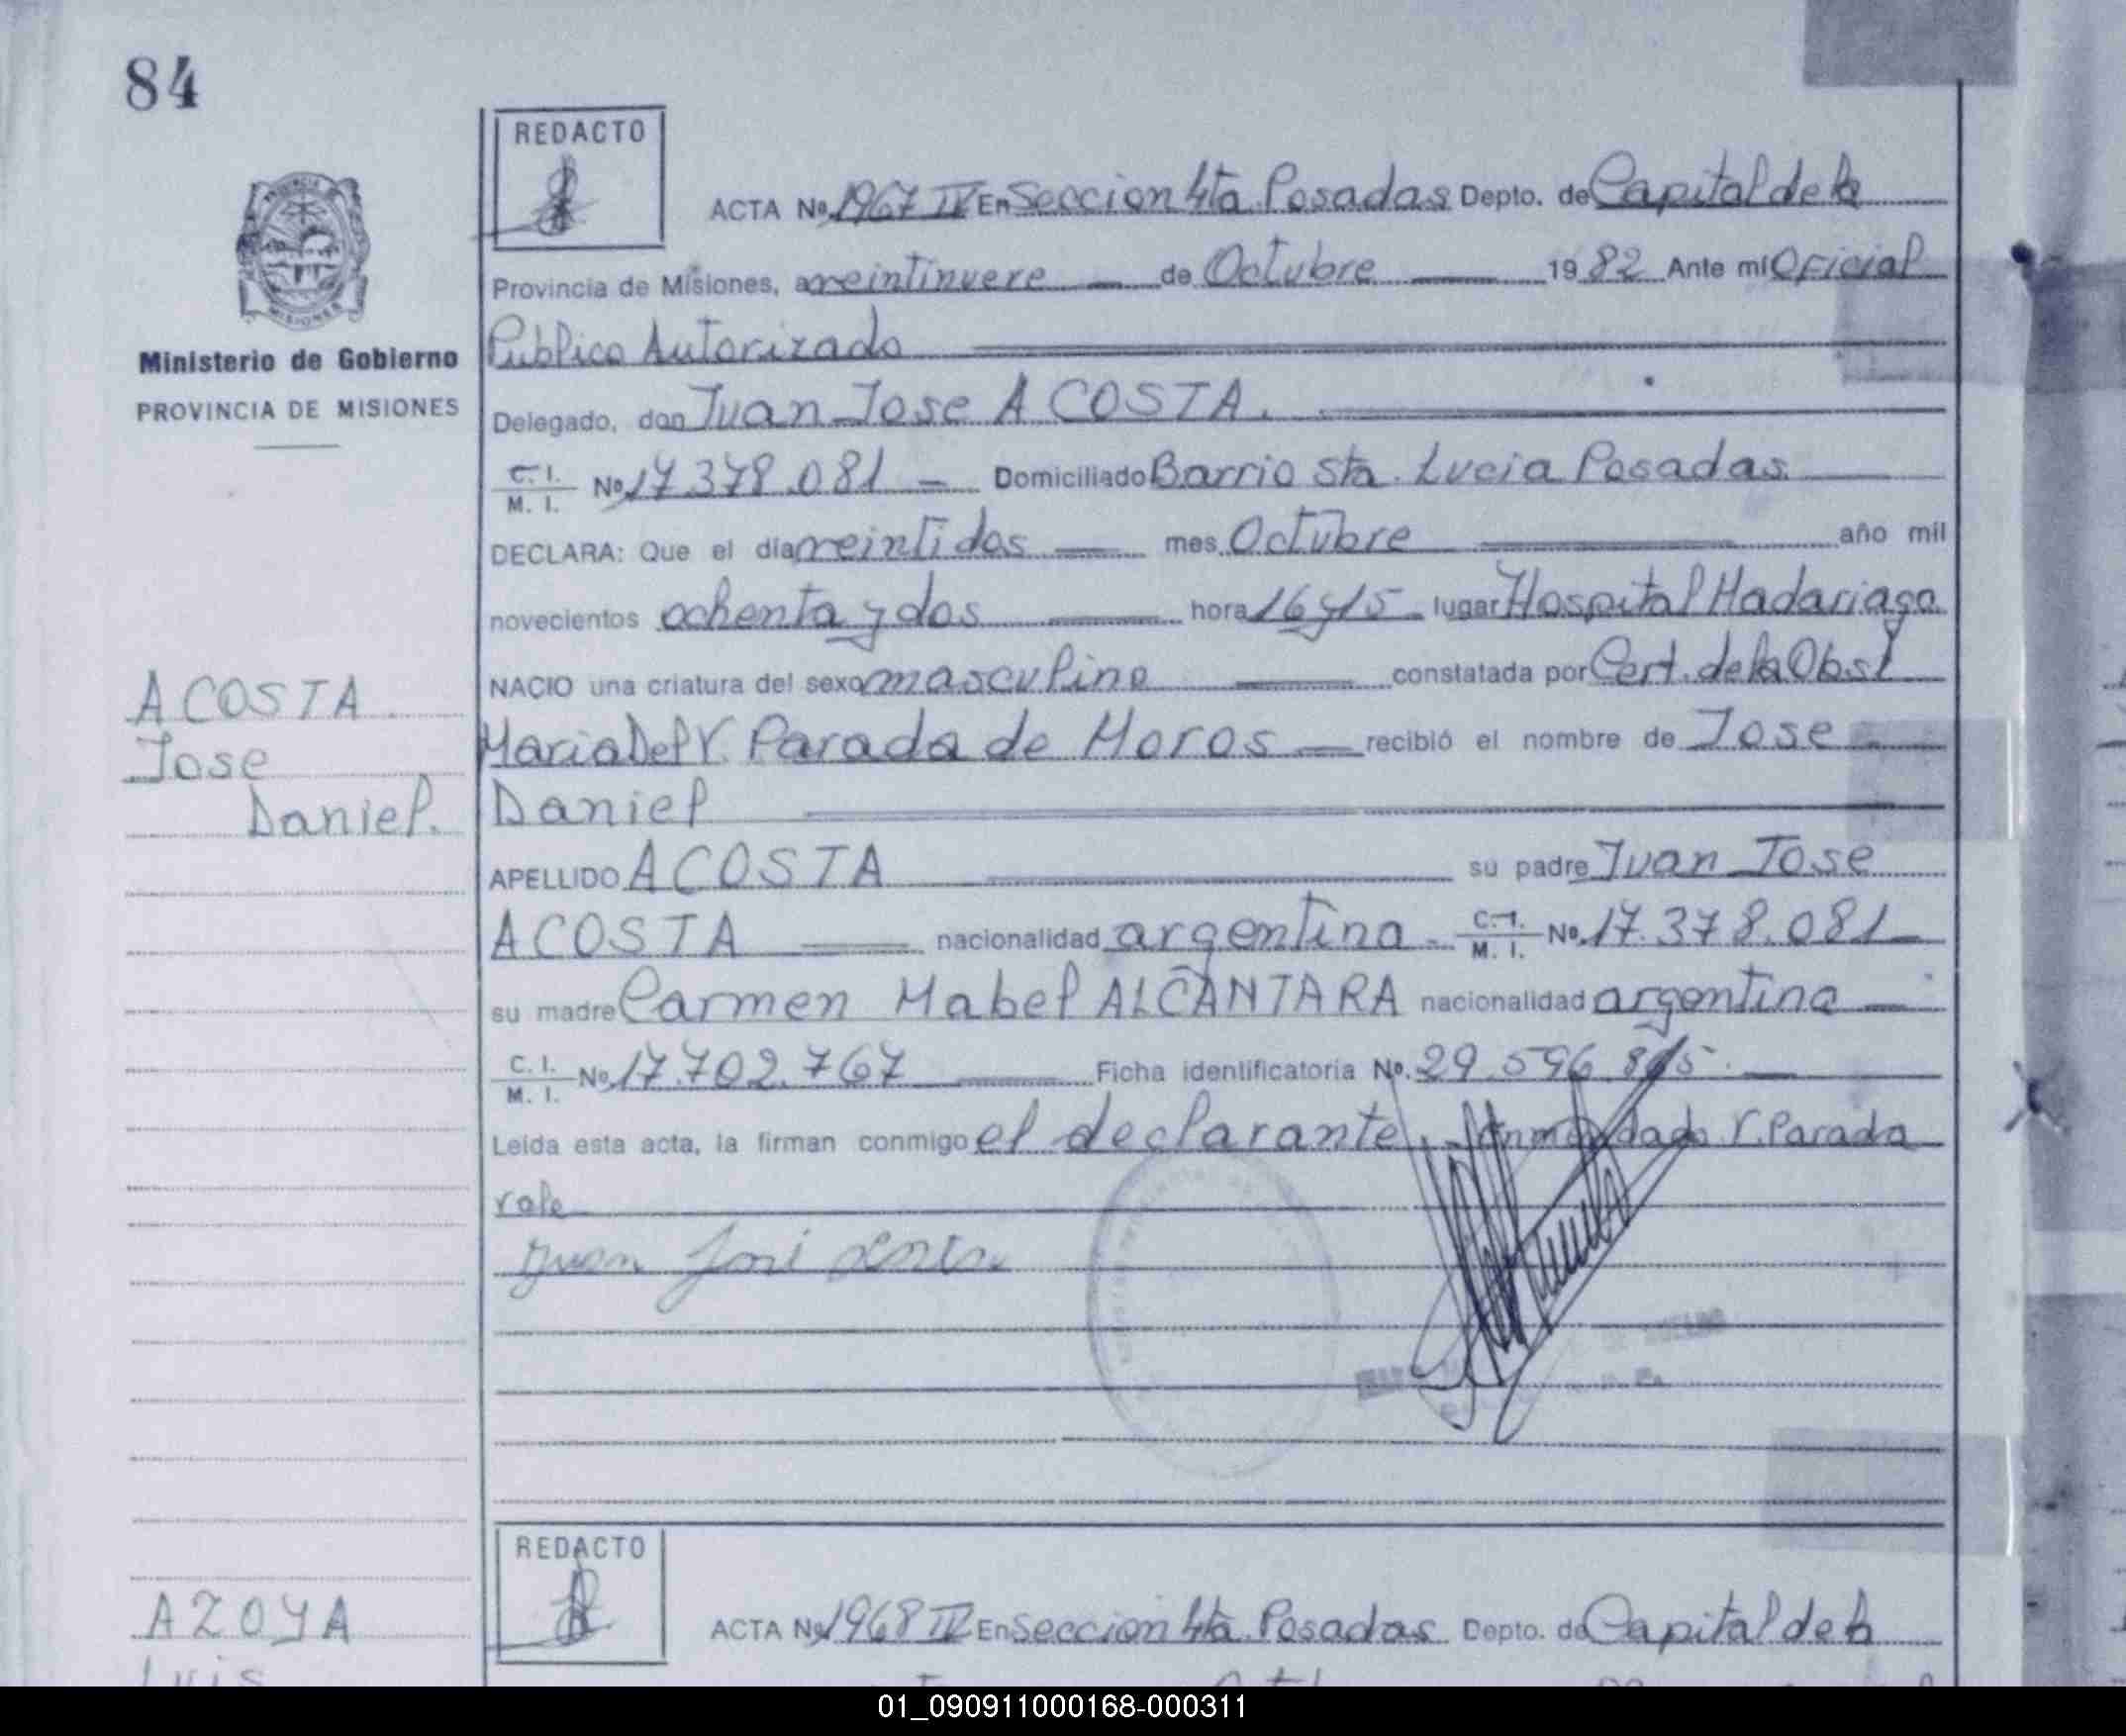 84
REDACTO
ACTA Nº 1967 IV En Seccion 4ta. Posadas Depto. de Capital de la
Provincia de Misiones, a veintinueve de Octubre 1982 Ante mi Oficial
Publico Autorizado
Ministerio de Gobierno
PROVINCIA DE MISIONES
Delegado, don Juan Jose ACOSTA.
C. I. M. I. Nº 17.378.081 Domiciliado Barrio Sta. Lucia Posadas.
DECLARA: Que el día veintidos mes Octubre año mil
novecientos ochenta y dos hora 16 y 15 lugar Hospital Madariaga
NACIO una criatura del sexo masculino constatada por Cert. de la Obst
Maria Del V. Parada de Moros recibió el nombre de Jose
Daniel
ACOSTA
Jose
Daniel.
APELLIDO ACOSTA su padre Juan Jose
ACOSTA nacionalidad argentina C. I. M. I. Nº 17.378.081
su madre Carmen Mabel ALCANTARA nacionalidad argentina
C. I. M. I. Nº 17.702.767 Ficha identificatoria Nº. 29.596.815
Leída esta acta, la firman conmigo el declarante. Enmendado V. Parada
vale
Juan José
REDACTO
ACTA Nº 1968 IV En Seccion 4ta. Posadas Depto. de Capital de la
AZOYA
Luis
01_090911000168-000311